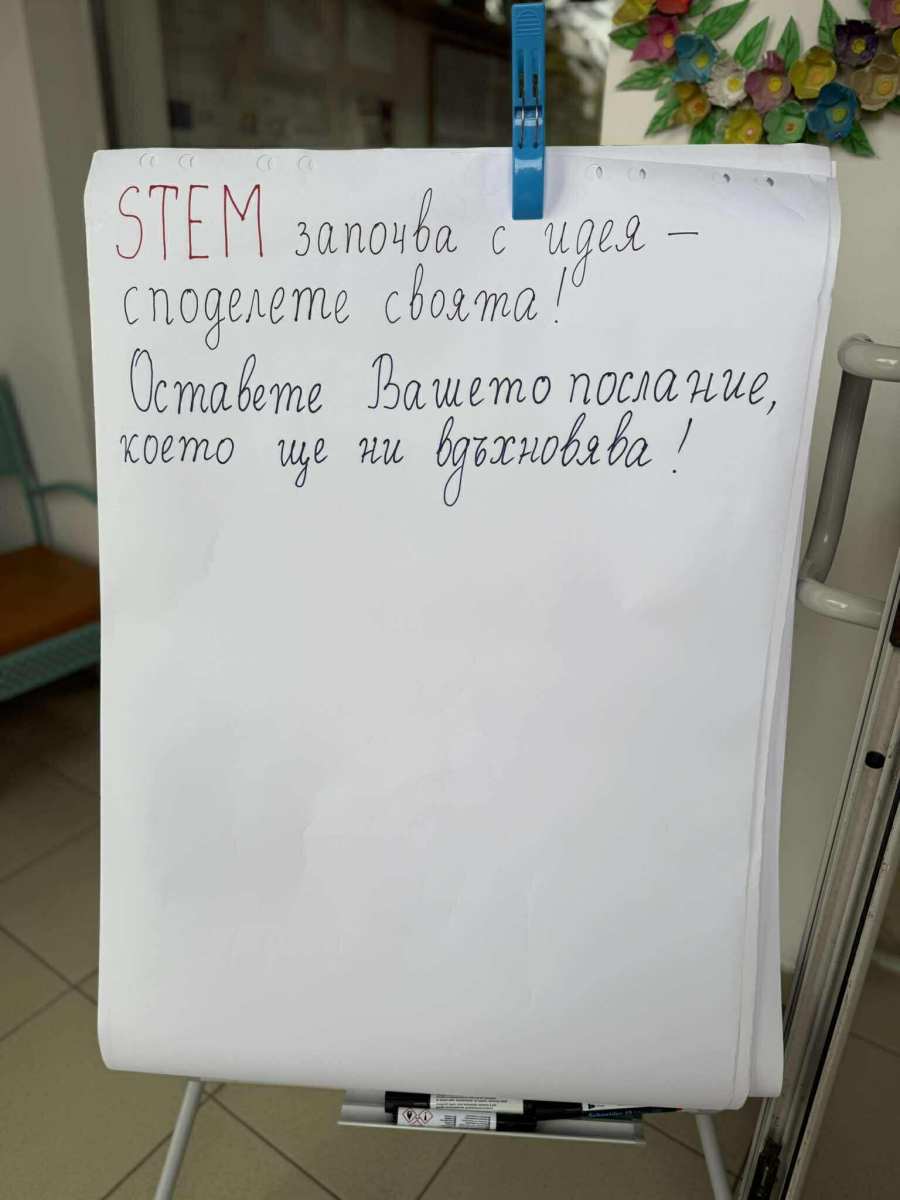 STEM започва с идея –
споделете своята!
Оставете Вашето послание,
което ще ни вдъхновява!